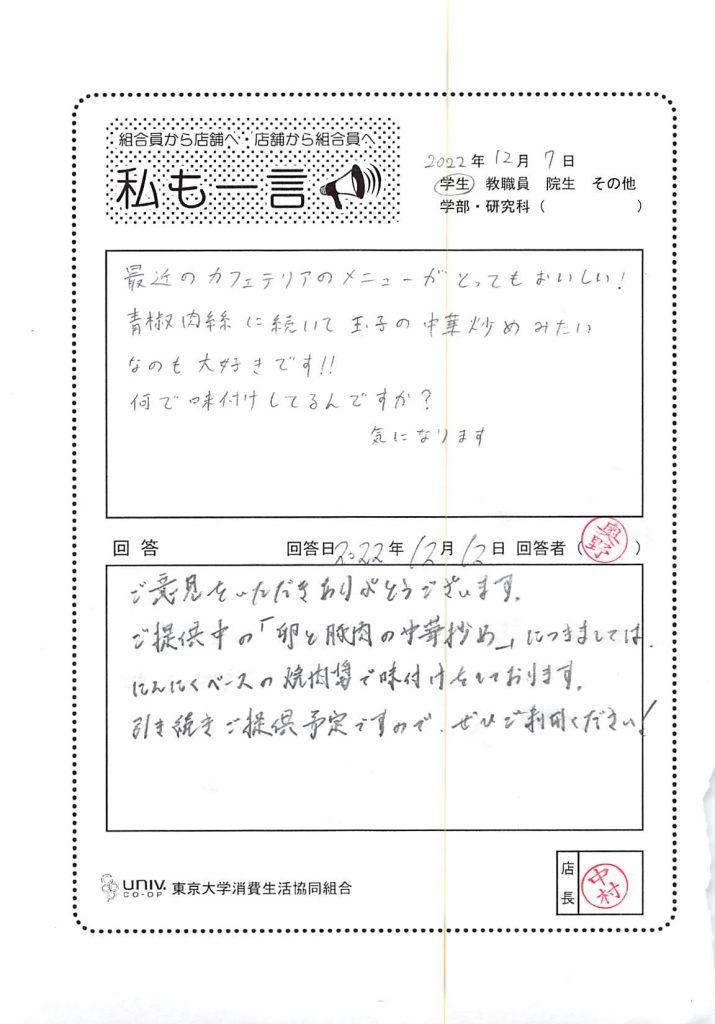 組合員から店舗へ・店舗から組合員へ
私も一言
2022年 12月 7日
学生 教職員 院生 その他
学部・研究科( )
最近のカフェテリアのメニューがとってもおいしい!
青椒肉絲に続いて玉子の中華炒めみたい
なのも大好きです!!
何で味付けしてるんですか?
気になります
回答 回答日 2022年 12月 12日 回答者(奥野)
ご意見をいただきありがとうございます。
ご提供中の「卵と豚肉の中華炒め」につきましては、
にんにくベースの焼肉醤で味付けをしております。
引き続きご提供予定ですので、ぜひご利用ください!
UNIV. CO-OP 東京大学消費生活協同組合
店長 中村